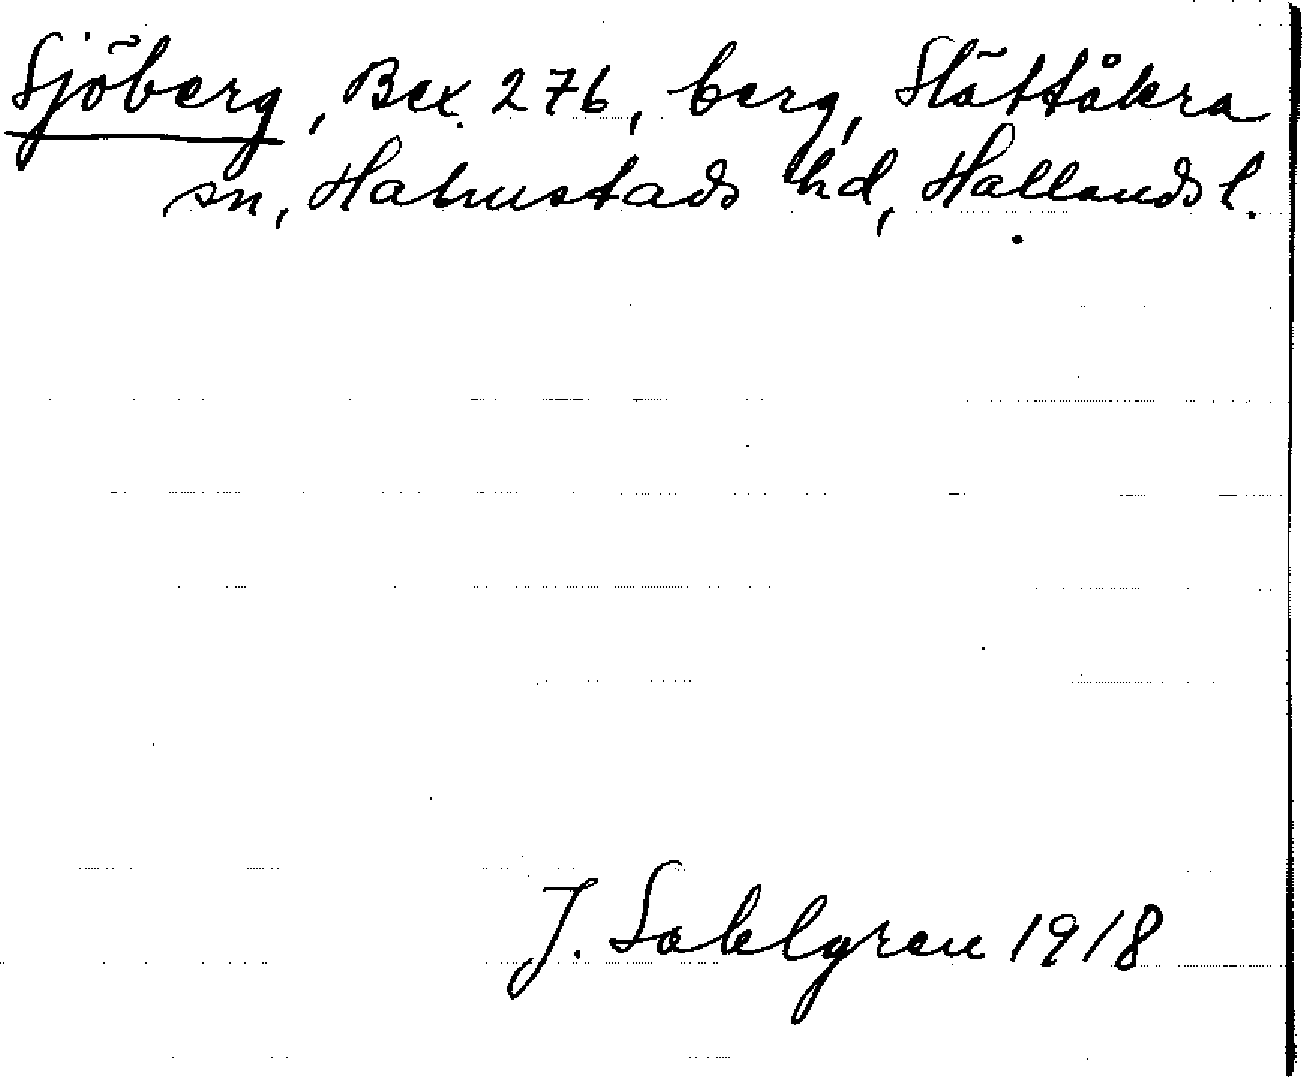 Sjöberg, Bex. 276, berg, Slättåkra
sn, Halmstads hd, Hallands l.
J. Sahlgren 1918